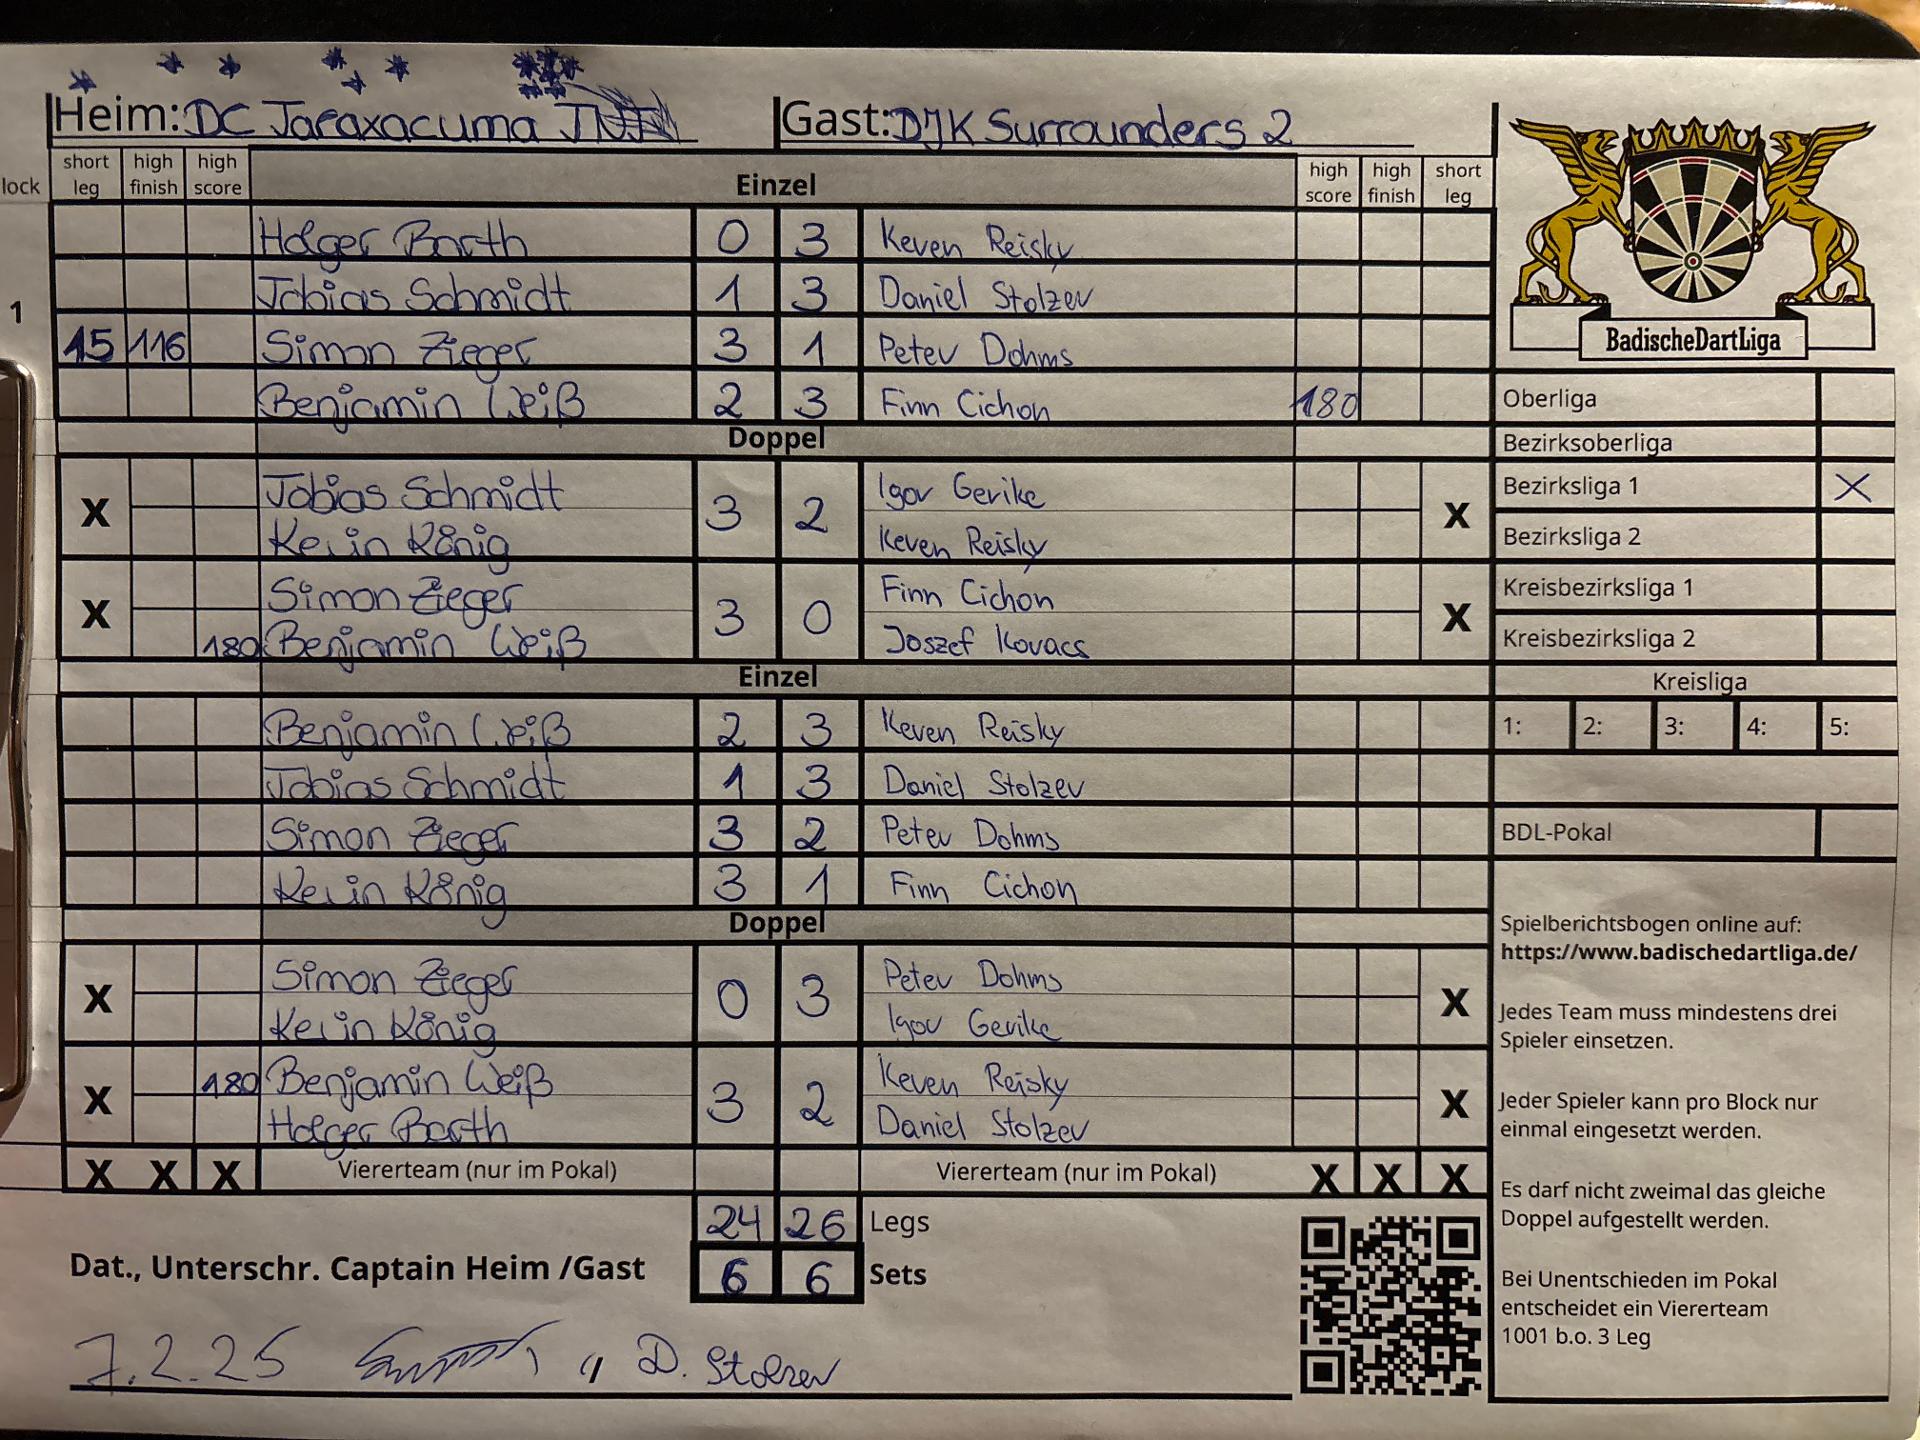 Heim: DC Taraxacuma Gast: DJK Surrounders 2
lock short leg high finish high score Einzel high score high finish short leg
Holger Barth 0 3 Keven Reisky
1 Tobias Schmidt 1 3 Daniel Stolzer
15 116 Simon Zieger 3 1 Peter Dohms
Benjamin Weiß 2 3 Finn Cichon 180
Doppel
Tobias Schmidt Igor Gerike
X 3 2 X
Kevin König Keven Reisky
Simon Zieger Finn Cichon
X 3 0 X
180 Benjamin Weiß Joszef Kovacs
Einzel
Benjamin Weiß 2 3 Keven Reisky
Tobias Schmidt 1 3 Daniel Stolzer
Simon Zieger 3 2 Peter Dohms
Kevin König 3 1 Finn Cichon
Doppel
Simon Zieger Peter Dohms
X 0 3 X
Kevin König Igor Gerike
180 Benjamin Weiß Keven Reisky
X 3 2 X
Holger Barth Daniel Stolzer
X X X Viererteam (nur im Pokal) Viererteam (nur im Pokal) X X X
24 26 Legs
Dat., Unterschr. Captain Heim /Gast 6 6 Sets
7.2.25 D. Stolzer
BadischeDartLiga
Oberliga
Bezirksoberliga
Bezirksliga 1 X
Bezirksliga 2
Kreisbezirksliga 1
Kreisbezirksliga 2
Kreisliga
1: 2: 3: 4: 5:
BDL-Pokal
Spielberichtsbogen online auf:
https://www.badischedartliga.de/
Jedes Team muss mindestens drei
Spieler einsetzen.
Jeder Spieler kann pro Block nur
einmal eingesetzt werden.
Es darf nicht zweimal das gleiche
Doppel aufgestellt werden.
Bei Unentschieden im Pokal
entscheidet ein Viererteam
1001 b.o. 3 Leg